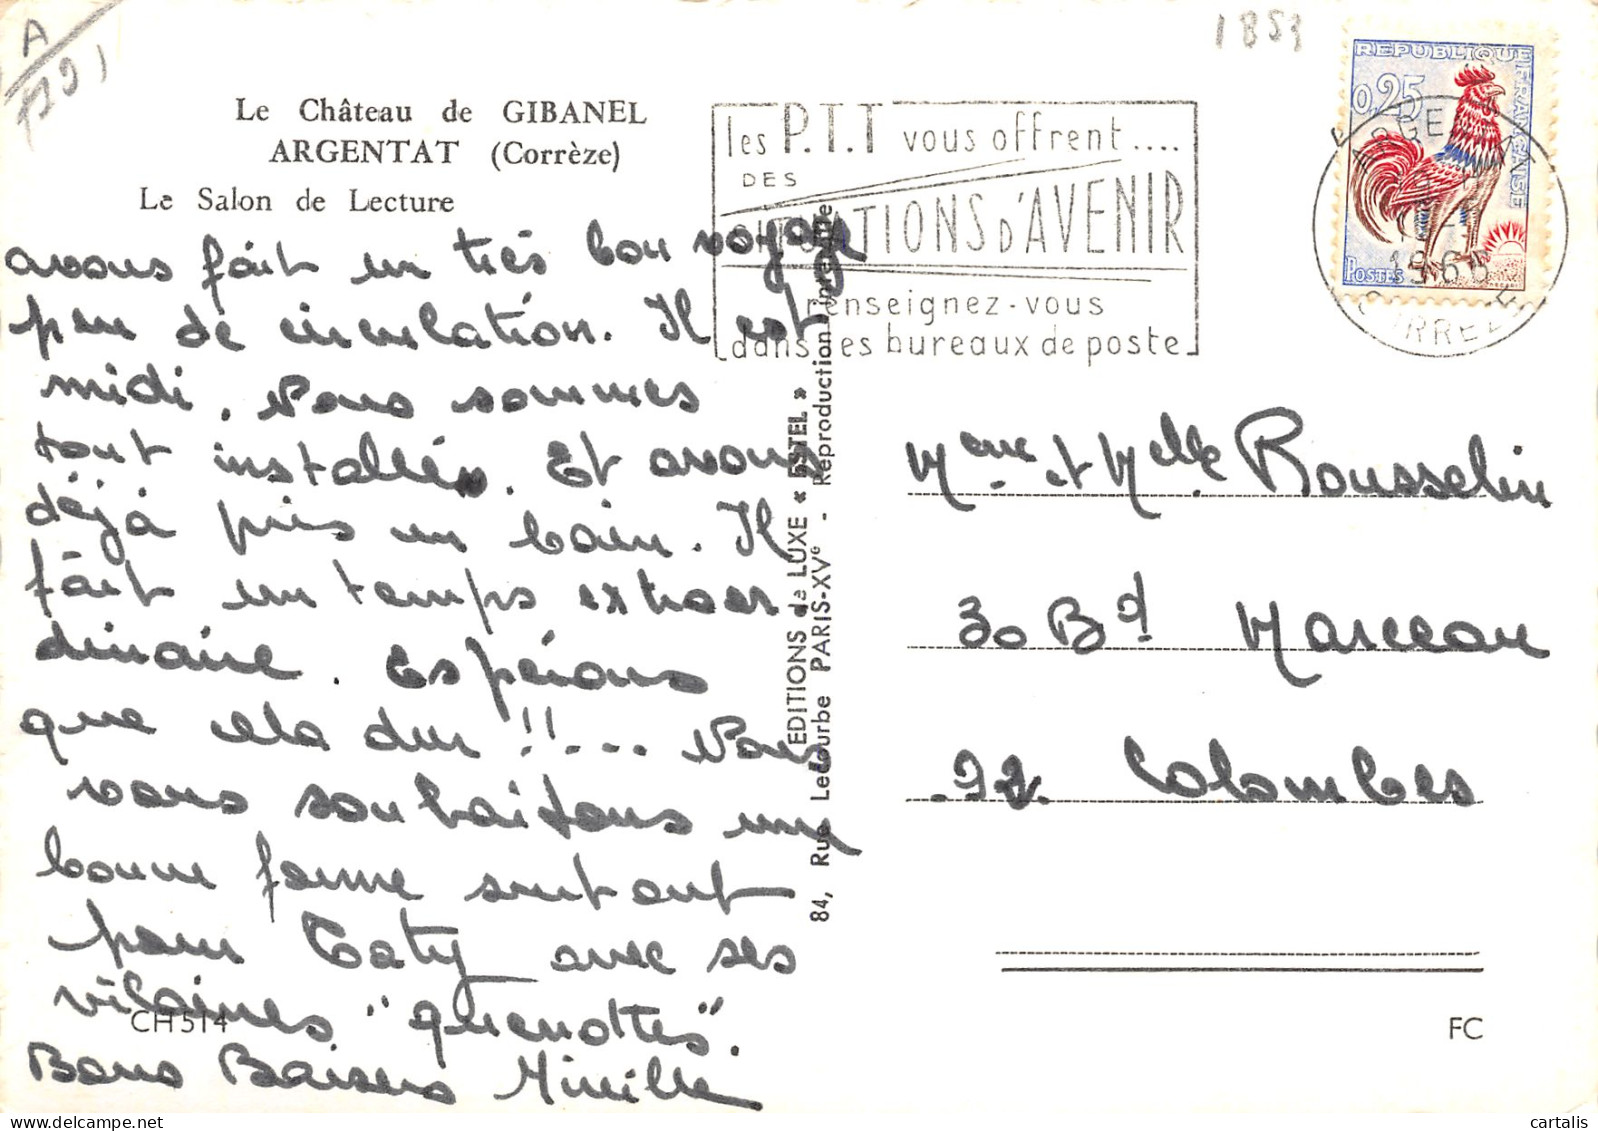 A
1853
Le Château de GIBANEL
ARGENTAT (Corrèze)
Le Salon de Lecture
les P.T.T vous offrent....
DES
SITUATIONS D'AVENIR
renseignez-vous
dans les bureaux de poste
REPUBLIQUE FRANÇAISE
0,25
POSTES
ARGENTAT
CORREZE
avons fait un très bon voyage
peu de circulation. Il est
midi. Nous sommes
tout installés. Et avons
déjà pris un bain. Il
fait un temps extraor
dinaire. Espérons
que cela dur !!... Nous
vous souhaitons une
bonne forme surtout
pour Caty avec ses
vilaines "quenottes".
Bons Baisers Mireille
CH 514
EDITIONS de LUXE « ESTEL »
84, Rue Lecourbe PARIS-XVe - Reproduction interdite
Mme et Melle Rousselin
30 Bd Marceau
92 Colombes
FC
cartalis